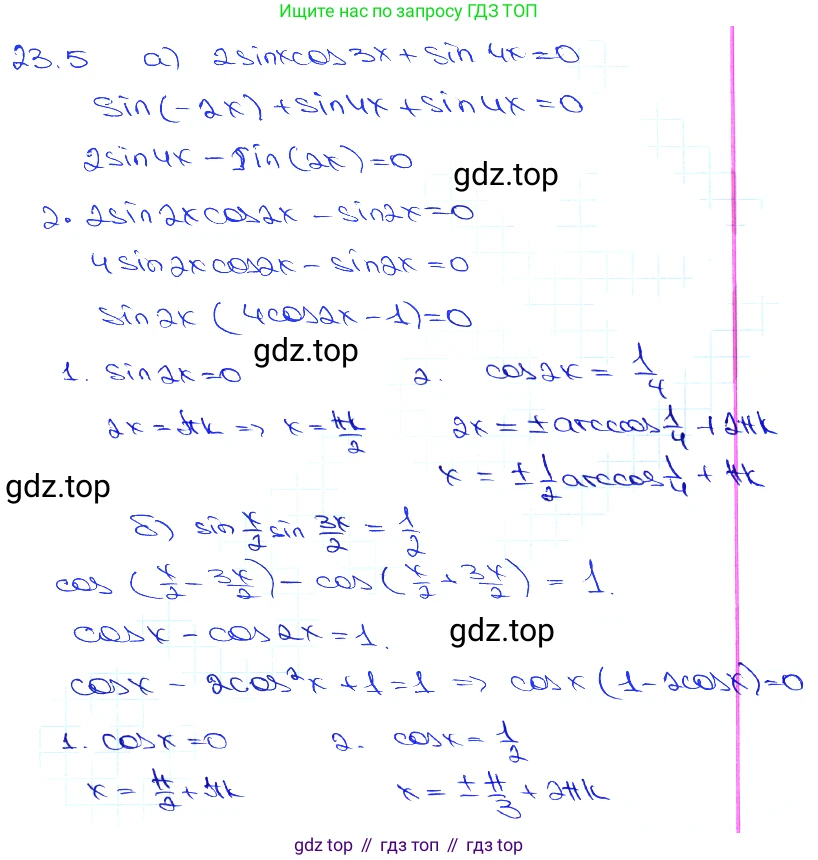 Ищите нас по запросу ГДЗ ТОП
23.5 а) 2sinxcos3x + sin 4x = 0
sin(-2x) + sin4x + sin4x = 0
2sin4x - sin(2x) = 0
gdz.top
2·2sin2xcos2x - sin2x = 0
4sin2xcos2x - sin2x = 0
sin2x (4cos2x - 1) = 0
gdz.top
1. sin2x = 0 2. cos2x = 1/4
2x = πk => x = πk/2 2x = ± arccos 1/4 + 2πk
gdz.top
x = ± 1/2 arccos 1/4 + πk
б) sin x/2 sin 3x/2 = 1/2
cos (x/2 - 3x/2) - cos (x/2 + 3x/2) = 1.
cosx - cos2x = 1.
gdz.top
cosx - 2cos²x + 1 = 1 => cosx (1 - 2cosx) = 0
1. cosx = 0 2. cosx = 1/2
x = π/2 + πk x = ± π/3 + 2πk
gdz top // гдз топ // gdz.top